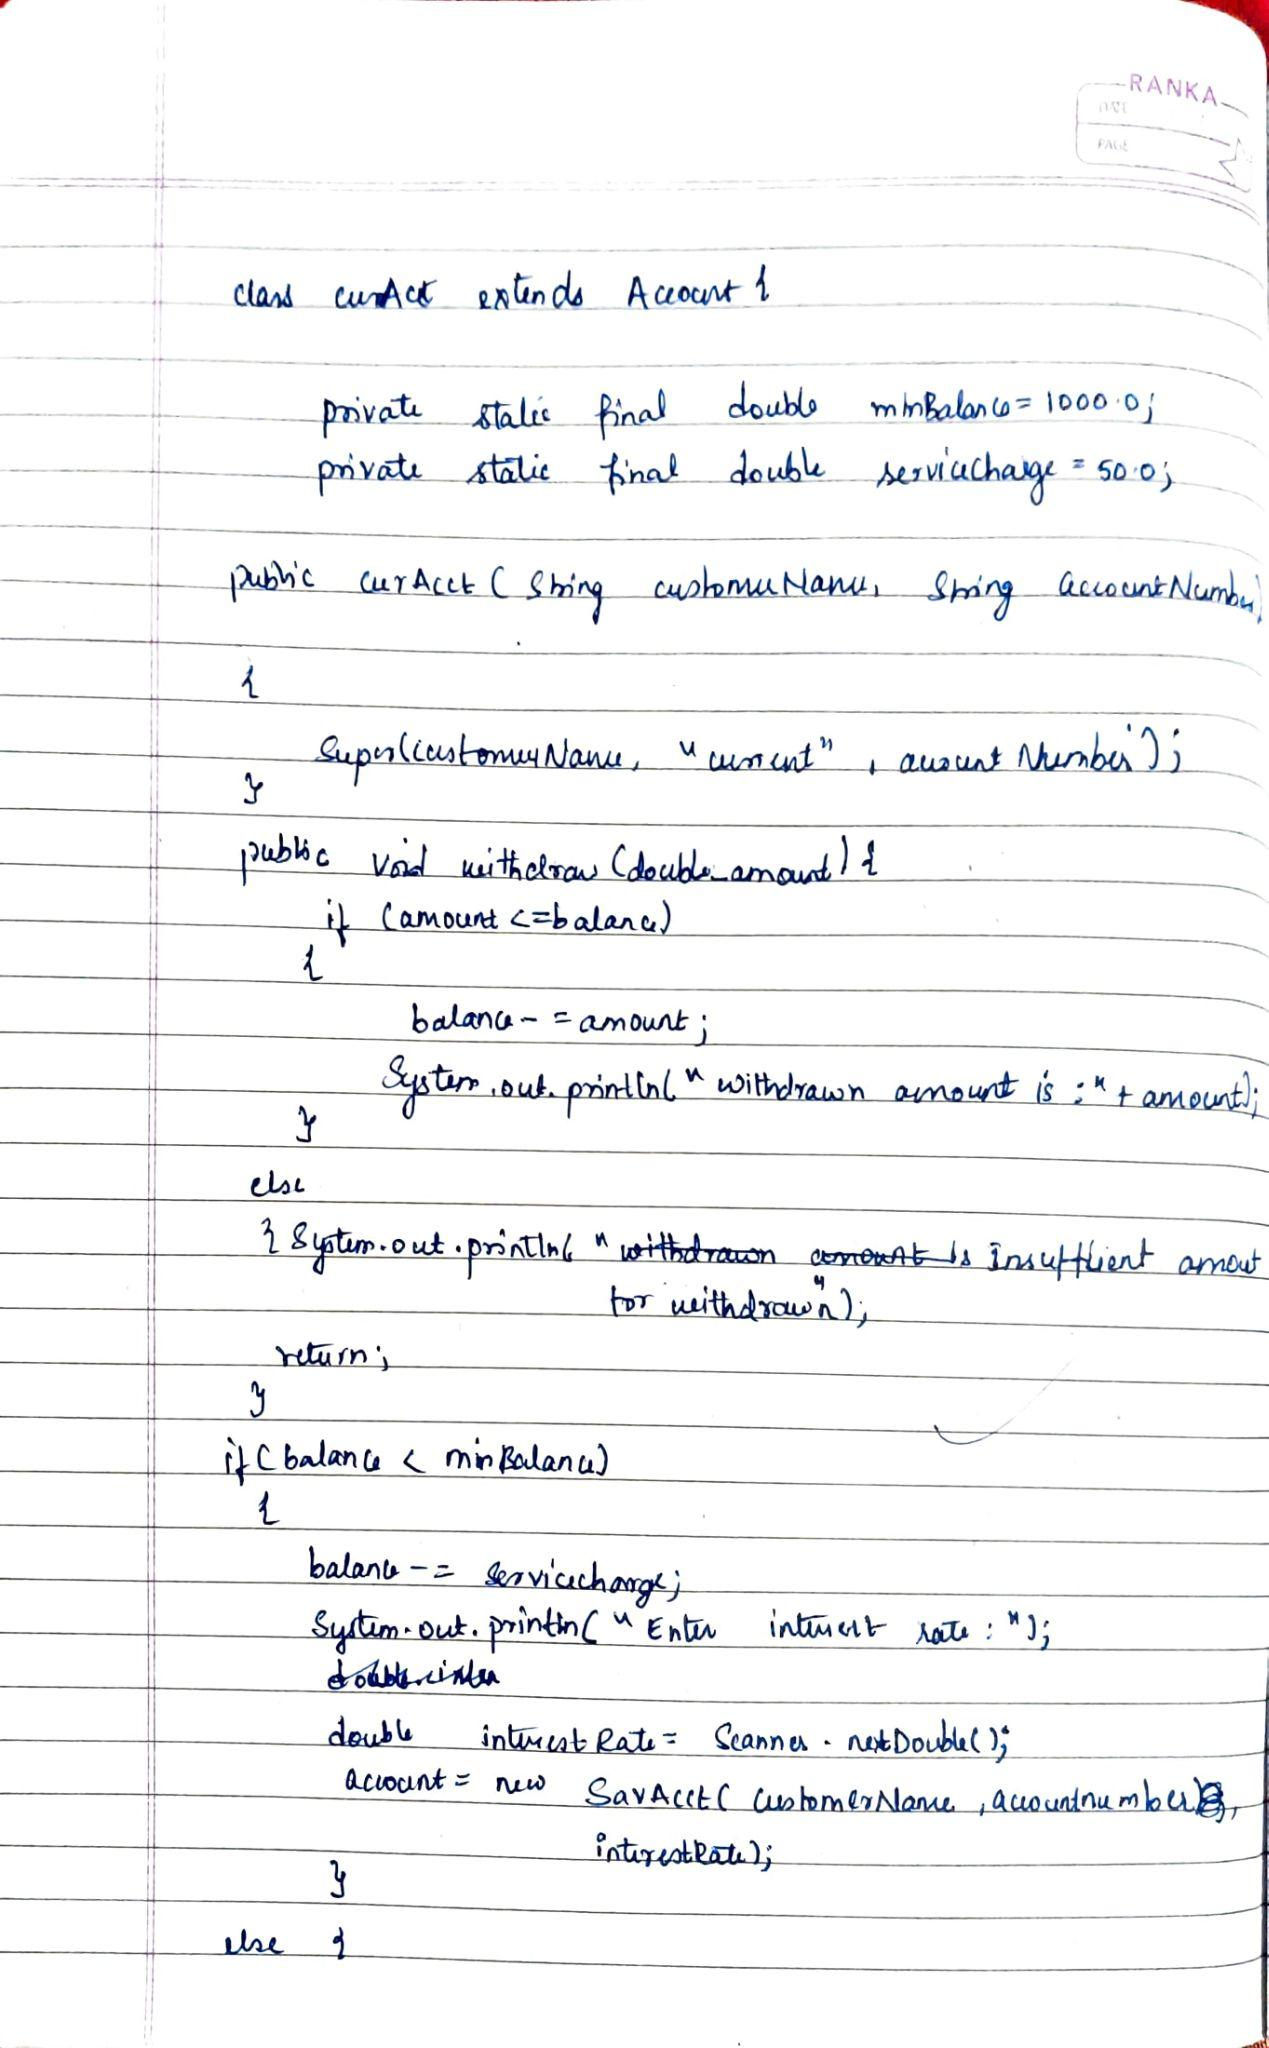 RANKA
DATE
PAGE
class curAct extends Account {
private static final double minBalance = 1000.0;
private static final double serviceCharge = 50.0;
public curAcct ( String customerName, String accountNumber)
{
super(customerName, "current" , account Number);
}
public void withdraw (double amount) {
if (amount <=balance)
{
balance - = amount ;
System.out.println( " withdrawn amount is : " + amount);
}
else
{ System.out.println( " withdrawn amount is Insuffient amout
for withdrawn");
return;
}
if ( balance < minBalance)
{
balance -= servicecharge;
System.out.println( " Enter interest rate : ");
double
double interestRate = Scanner . nextDouble( );
account = new SavAcct ( customerName , accountnumber ,
interestRate);
}
else {